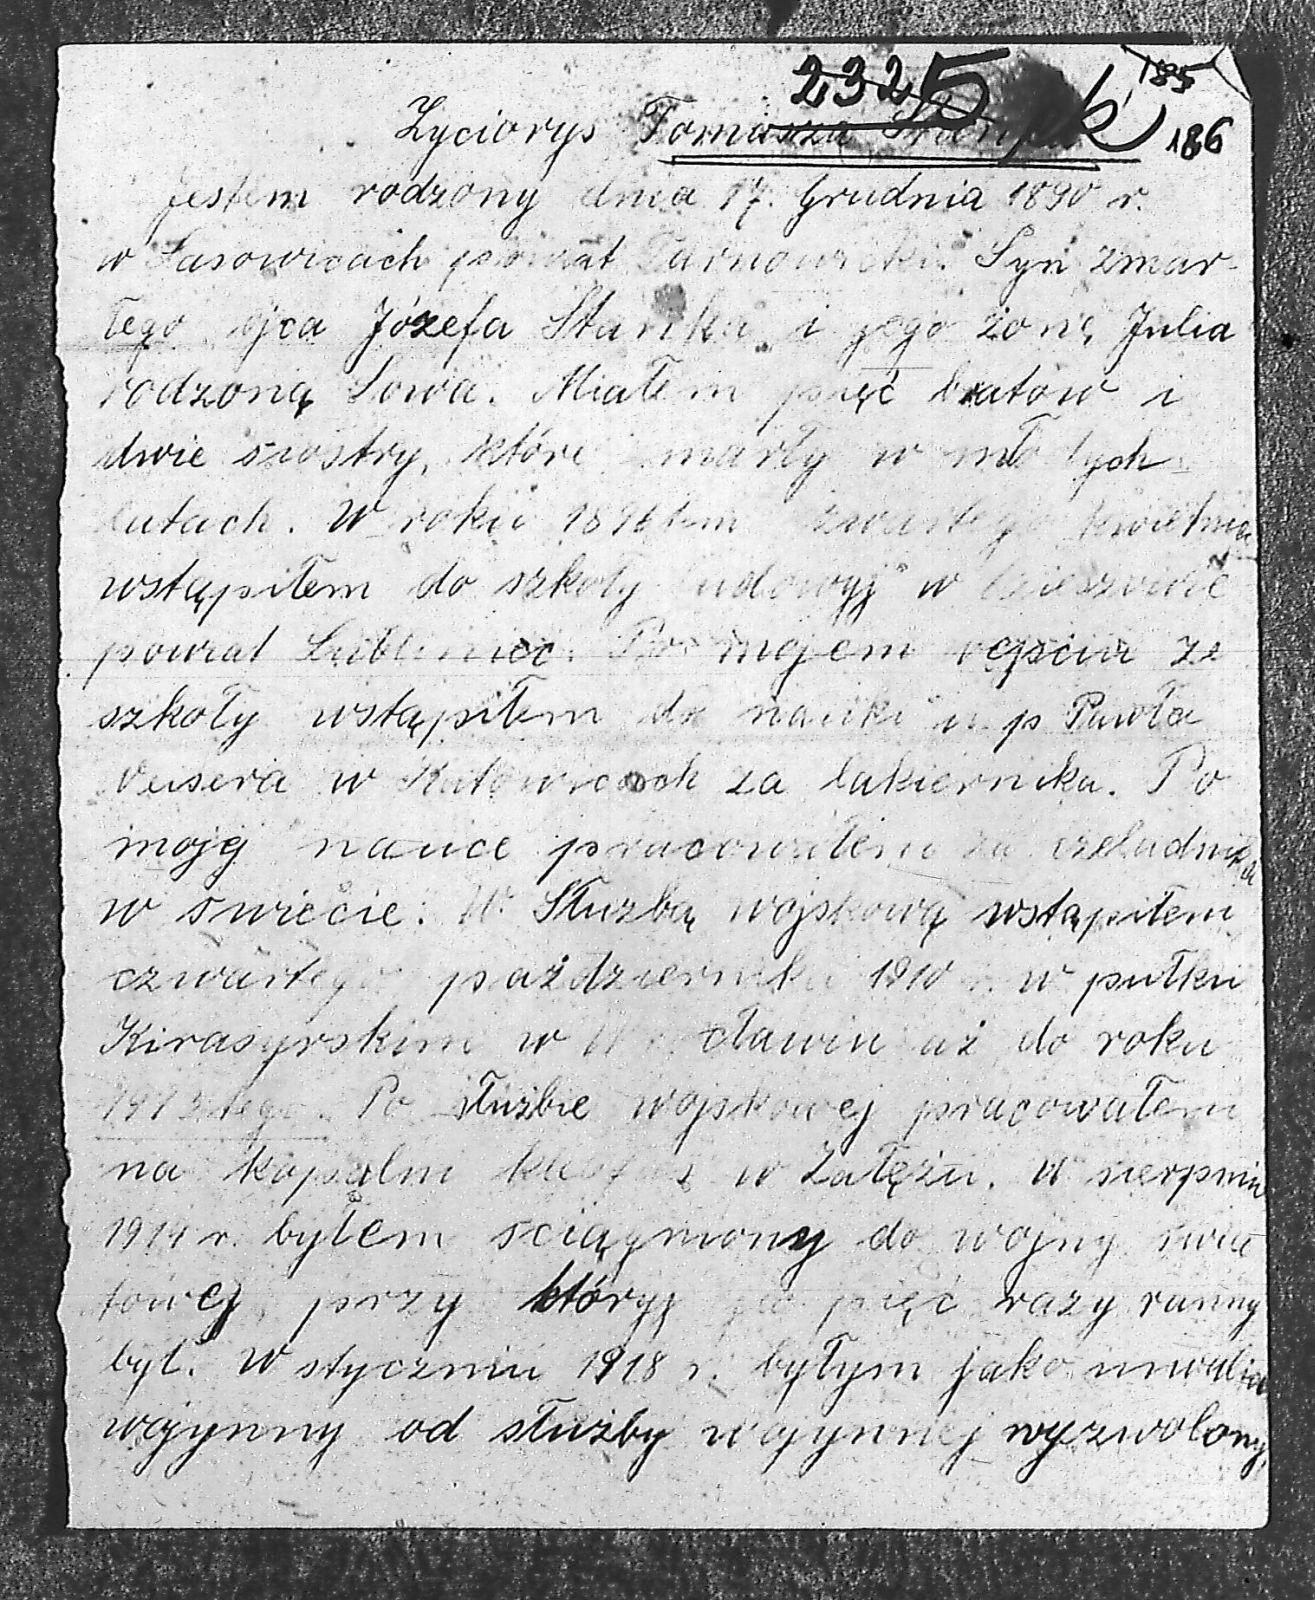 2325
185
186
Życiorys Tomasza
Jestem rodzony dnia 17. Grudnia 1890 r.
w Lasowicach powiat Tarnowicki. Syn zmar-
łego ojca Józefa Stanika i jego żonę Julia
rodzoną Sowa. Miałem pięć bratów i
dwie siostry, które marły w młodych
latach. W roku 1896 tem czwartego kwietnia
wstąpiłem do szkoły ludowyj w
powiat Lubliniec. Po mojem wejściu ze
szkoły wstąpiłem do nauki u p Pawła
w Katowicach za lakiernika. Po
mojej nauce pracowałem za czeladnika
w świecie. W Służbą wojskową wstąpiłem
czwartego październiku 1910 r. w pułku
Kirasyrskim w Wrocławiu aż do roku
1913 tego. Po służbie wojskowej pracowałem
na kopalni w Załężu. W sierpniu
1914 r. byłem ściągniony do wojny świa
towej, przy któryj ja pięć razy ranny
był. W styczniu 1918 r. byłym jako inwalida
wojynny od służby wojynnej wyzwolony,